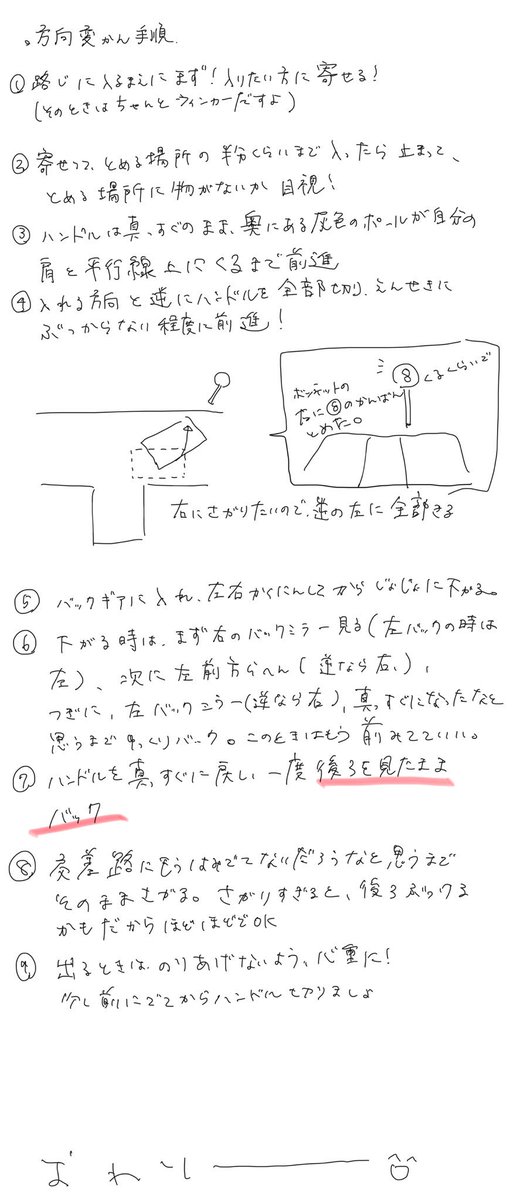 。方向変かん手順.
① 路じに入るまえにまず!入りたい方に寄せる!
(そのときはちゃんとウィンカーだすよ)
② 寄せって、とめる場所の半分くらいまで入ったら止まって、
とめる場所に物がないか目視!
③ ハンドルは真っすぐのまま、奥にある灰色のポールが自分の
肩と平行線上にくるまで前進
④ 入れる方向と逆にハンドルを全部切り、えんせきに
ぶつからない程度に前進!
ボンネットの
右に⑧のかんばん
とめた。
⑧くるくらいで
右にさがりたいので、逆の左に全部きる
⑤ バックギアに入れ、左右かくにんしてからじょじょに下がる。
⑥ 下がる時は、まず右のバックミラー見る(左バックの時は
左)、次に左前方らへん(逆なら右)、
つぎに、左バックミラー(逆なら右)、真っすぐになったなと
思うまでゆっくりバック。このときはもう前みてていい。
⑦ ハンドルを真っすぐに戻し一度後ろを見たまま
バック
⑧ 交差路にもうはみでてないだろうなと思うまで
そのままさがる。さがりすぎると、後ろぶつける
かもだからほどほどでOK
⑨ 出るときは、のりあげないよう、心重に!
少し前にでてからハンドル切りましょ
おわり